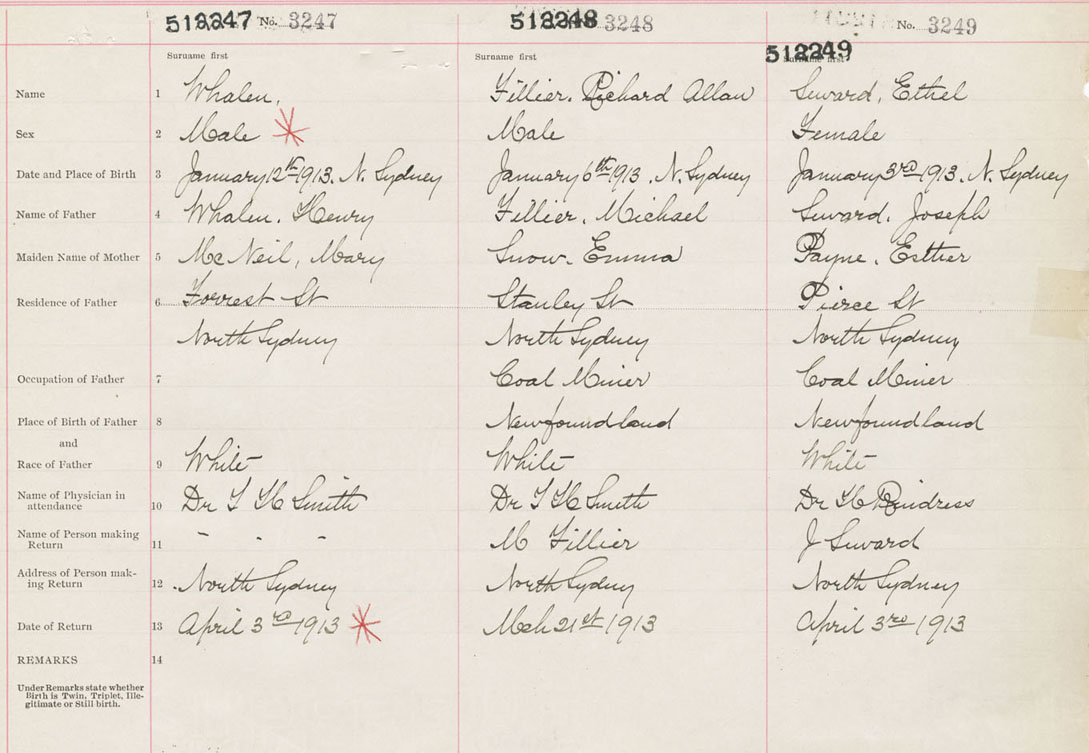 512247 No. 3247 512248 3248 No. 3249
Surname first Surname first 512249 Surname first
Name 1 Whalen, Fillier, Richard Allan Seward, Ethel
Sex 2 Male * Male Female
Date and Place of Birth 3 January 12th 1913. N. Sydney January 6th 1913. N. Sydney January 3rd 1913. N. Sydney
Name of Father 4 Whalen, Henry Fillier, Michael Seward, Joseph
Maiden Name of Mother 5 McNeil, Mary Snow, Emma Payne, Esther
Residence of Father 6 Forrest St Stanley St Pierce St
North Sydney North Sydney North Sydney
Occupation of Father 7 Coal Miner Coal Miner
Place of Birth of Father 8 Newfoundland Newfoundland
and
Race of Father 9 White White White
Name of Physician in
attendance 10 Dr Smith Dr Smith Dr
Name of Person making
Return 11 - - - M Fillier J Seward
Address of Person mak-
ing Return 12 North Sydney North Sydney North Sydney
Date of Return 13 April 3rd 1913 * Mch 21st 1913 April 3rd 1913
REMARKS 14
Under Remarks state whether
Birth is Twin, Triplet, Ille-
gitimate or Still birth.